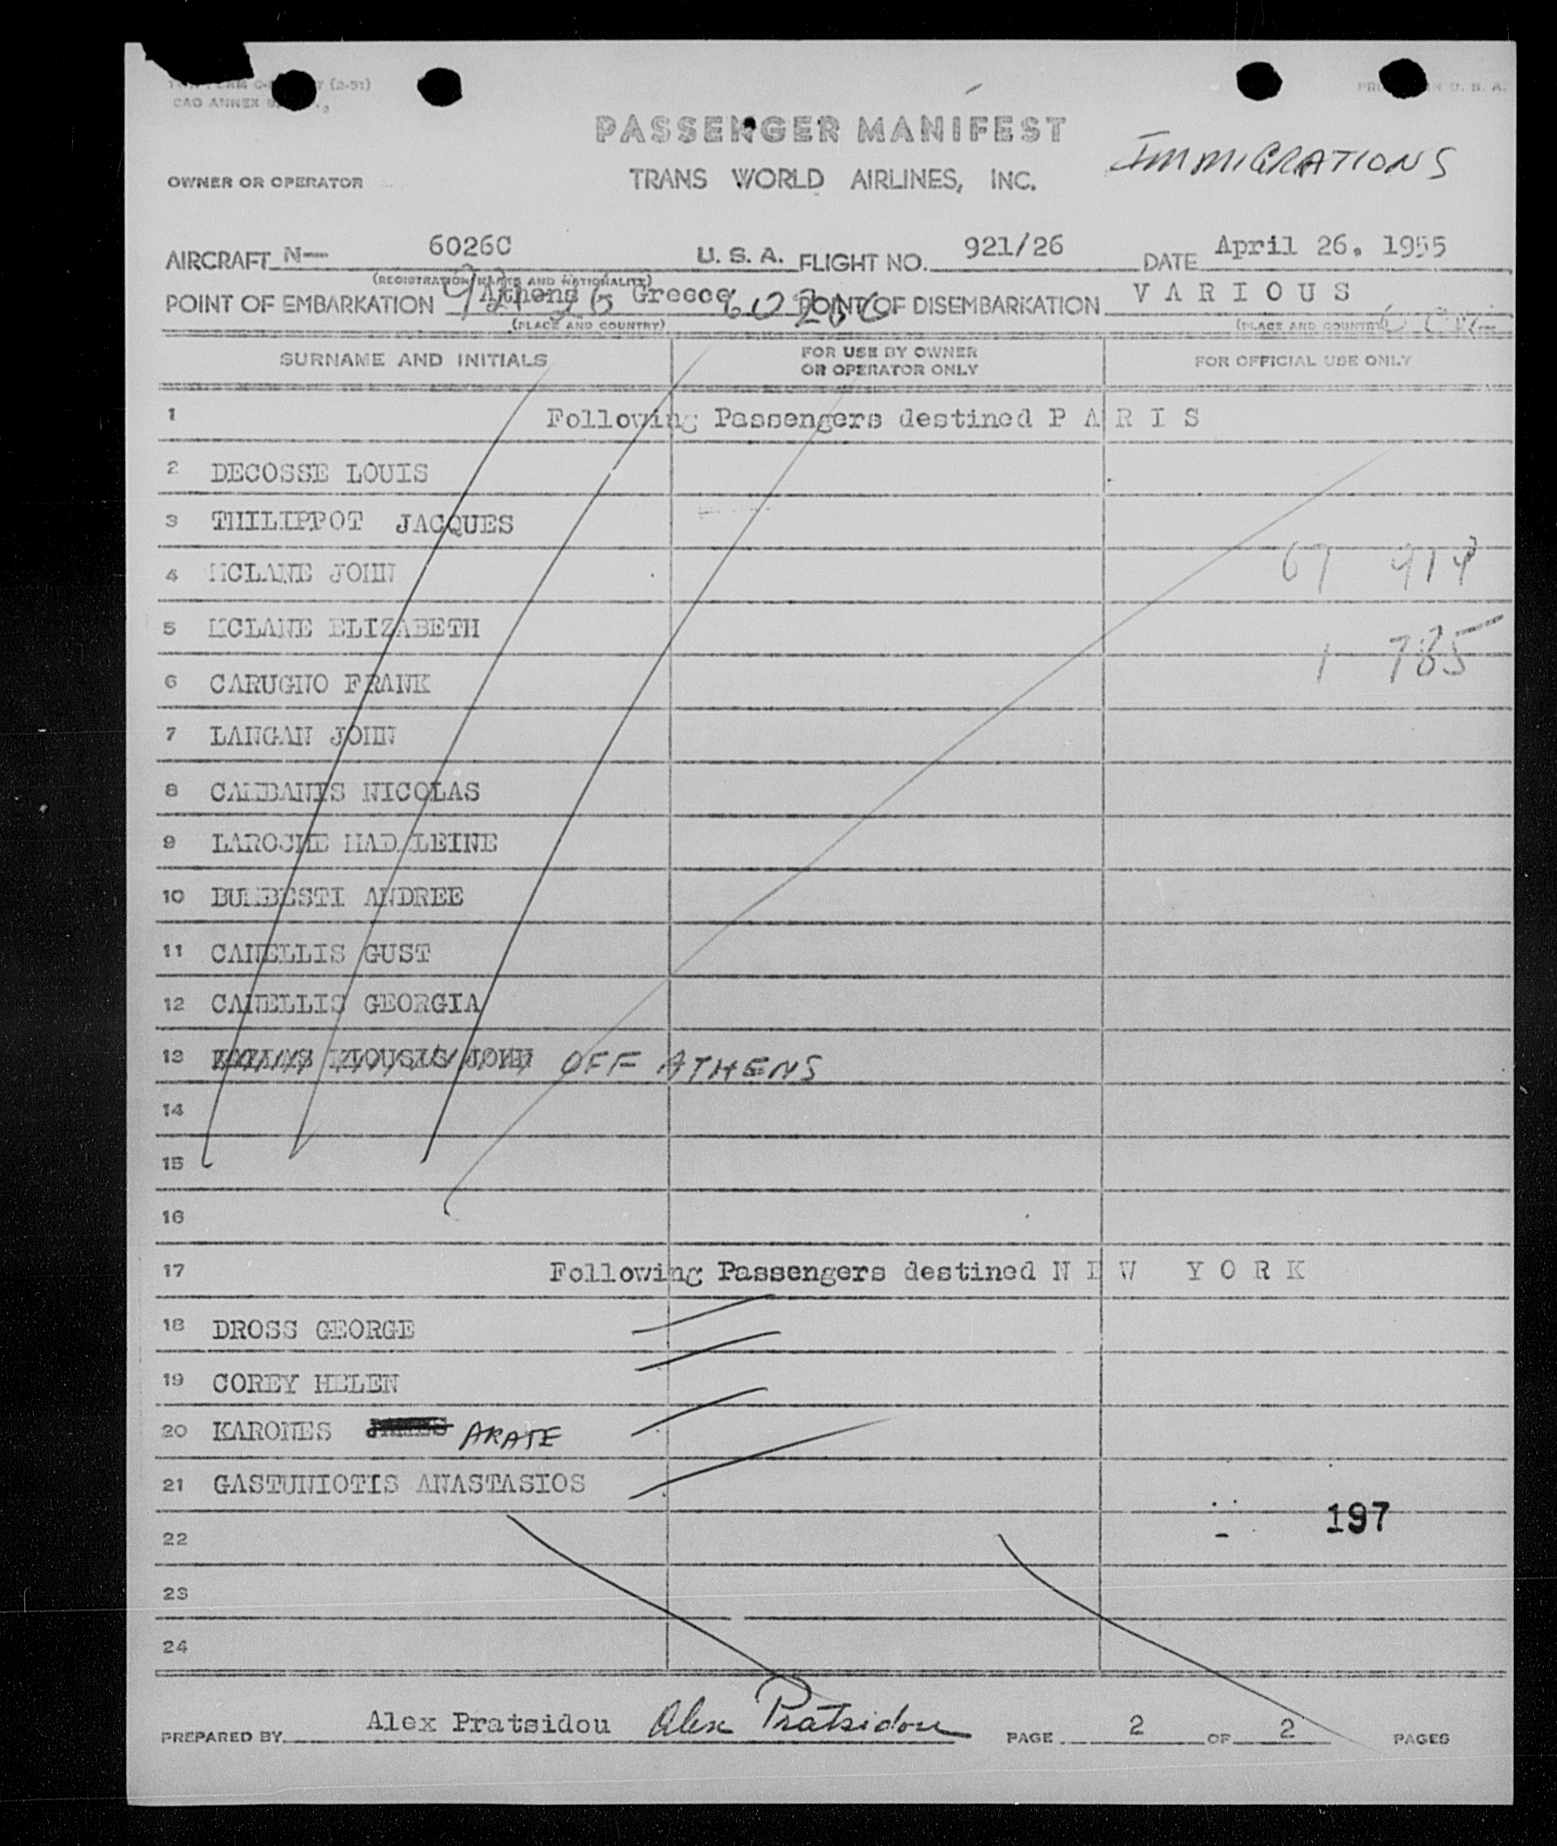 (2-51)
CAO ANNEX
PASSENGER MANIFEST
IMMIGRATIONS
OWNER OR OPERATOR
TRANS WORLD AIRLINES, INC.
AIRCRAFT N— 6026C U. S. A. FLIGHT NO. 921/26 DATE April 26. 1955
(REGISTRATION MARKS AND NATIONALITY)
POINT OF EMBARKATION Athens Greece POINT OF DISEMBARKATION V A R I O U S
921 26 6026C
(PLACE AND COUNTRY) (PLACE AND COUNTRY)
SURNAME AND INITIALS FOR USE BY OWNER OR OPERATOR ONLY FOR OFFICIAL USE ONLY
1 Following Passengers destined P A R I S
2 DECOSSE LOUIS
3 THILIPPOT JACQUES
4 MCLANE JOHN 67 914
5 MCLANE ELIZABETH 1 785
6 CARUGNO FRANK
7 LANGAN JOHN
8 CAMBANIS NICOLAS
9 LAROCHE MADALEINE
10 BUMBESTI ANDREE
11 CANELLIS GUST
12 CANELLIS GEORGIA
13 JOHN OFF ATHENS
14
15
16
17 Following Passengers destined N E W Y O R K
18 DROSS GEORGE
19 COREY HELEN
20 KARONES JAMES ARATE
21 GASTUNIOTIS ANASTASIOS
197
22
23
24
PREPARED BY Alex Pratsidou Alex Pratsidou PAGE 2 OF 2 PAGES